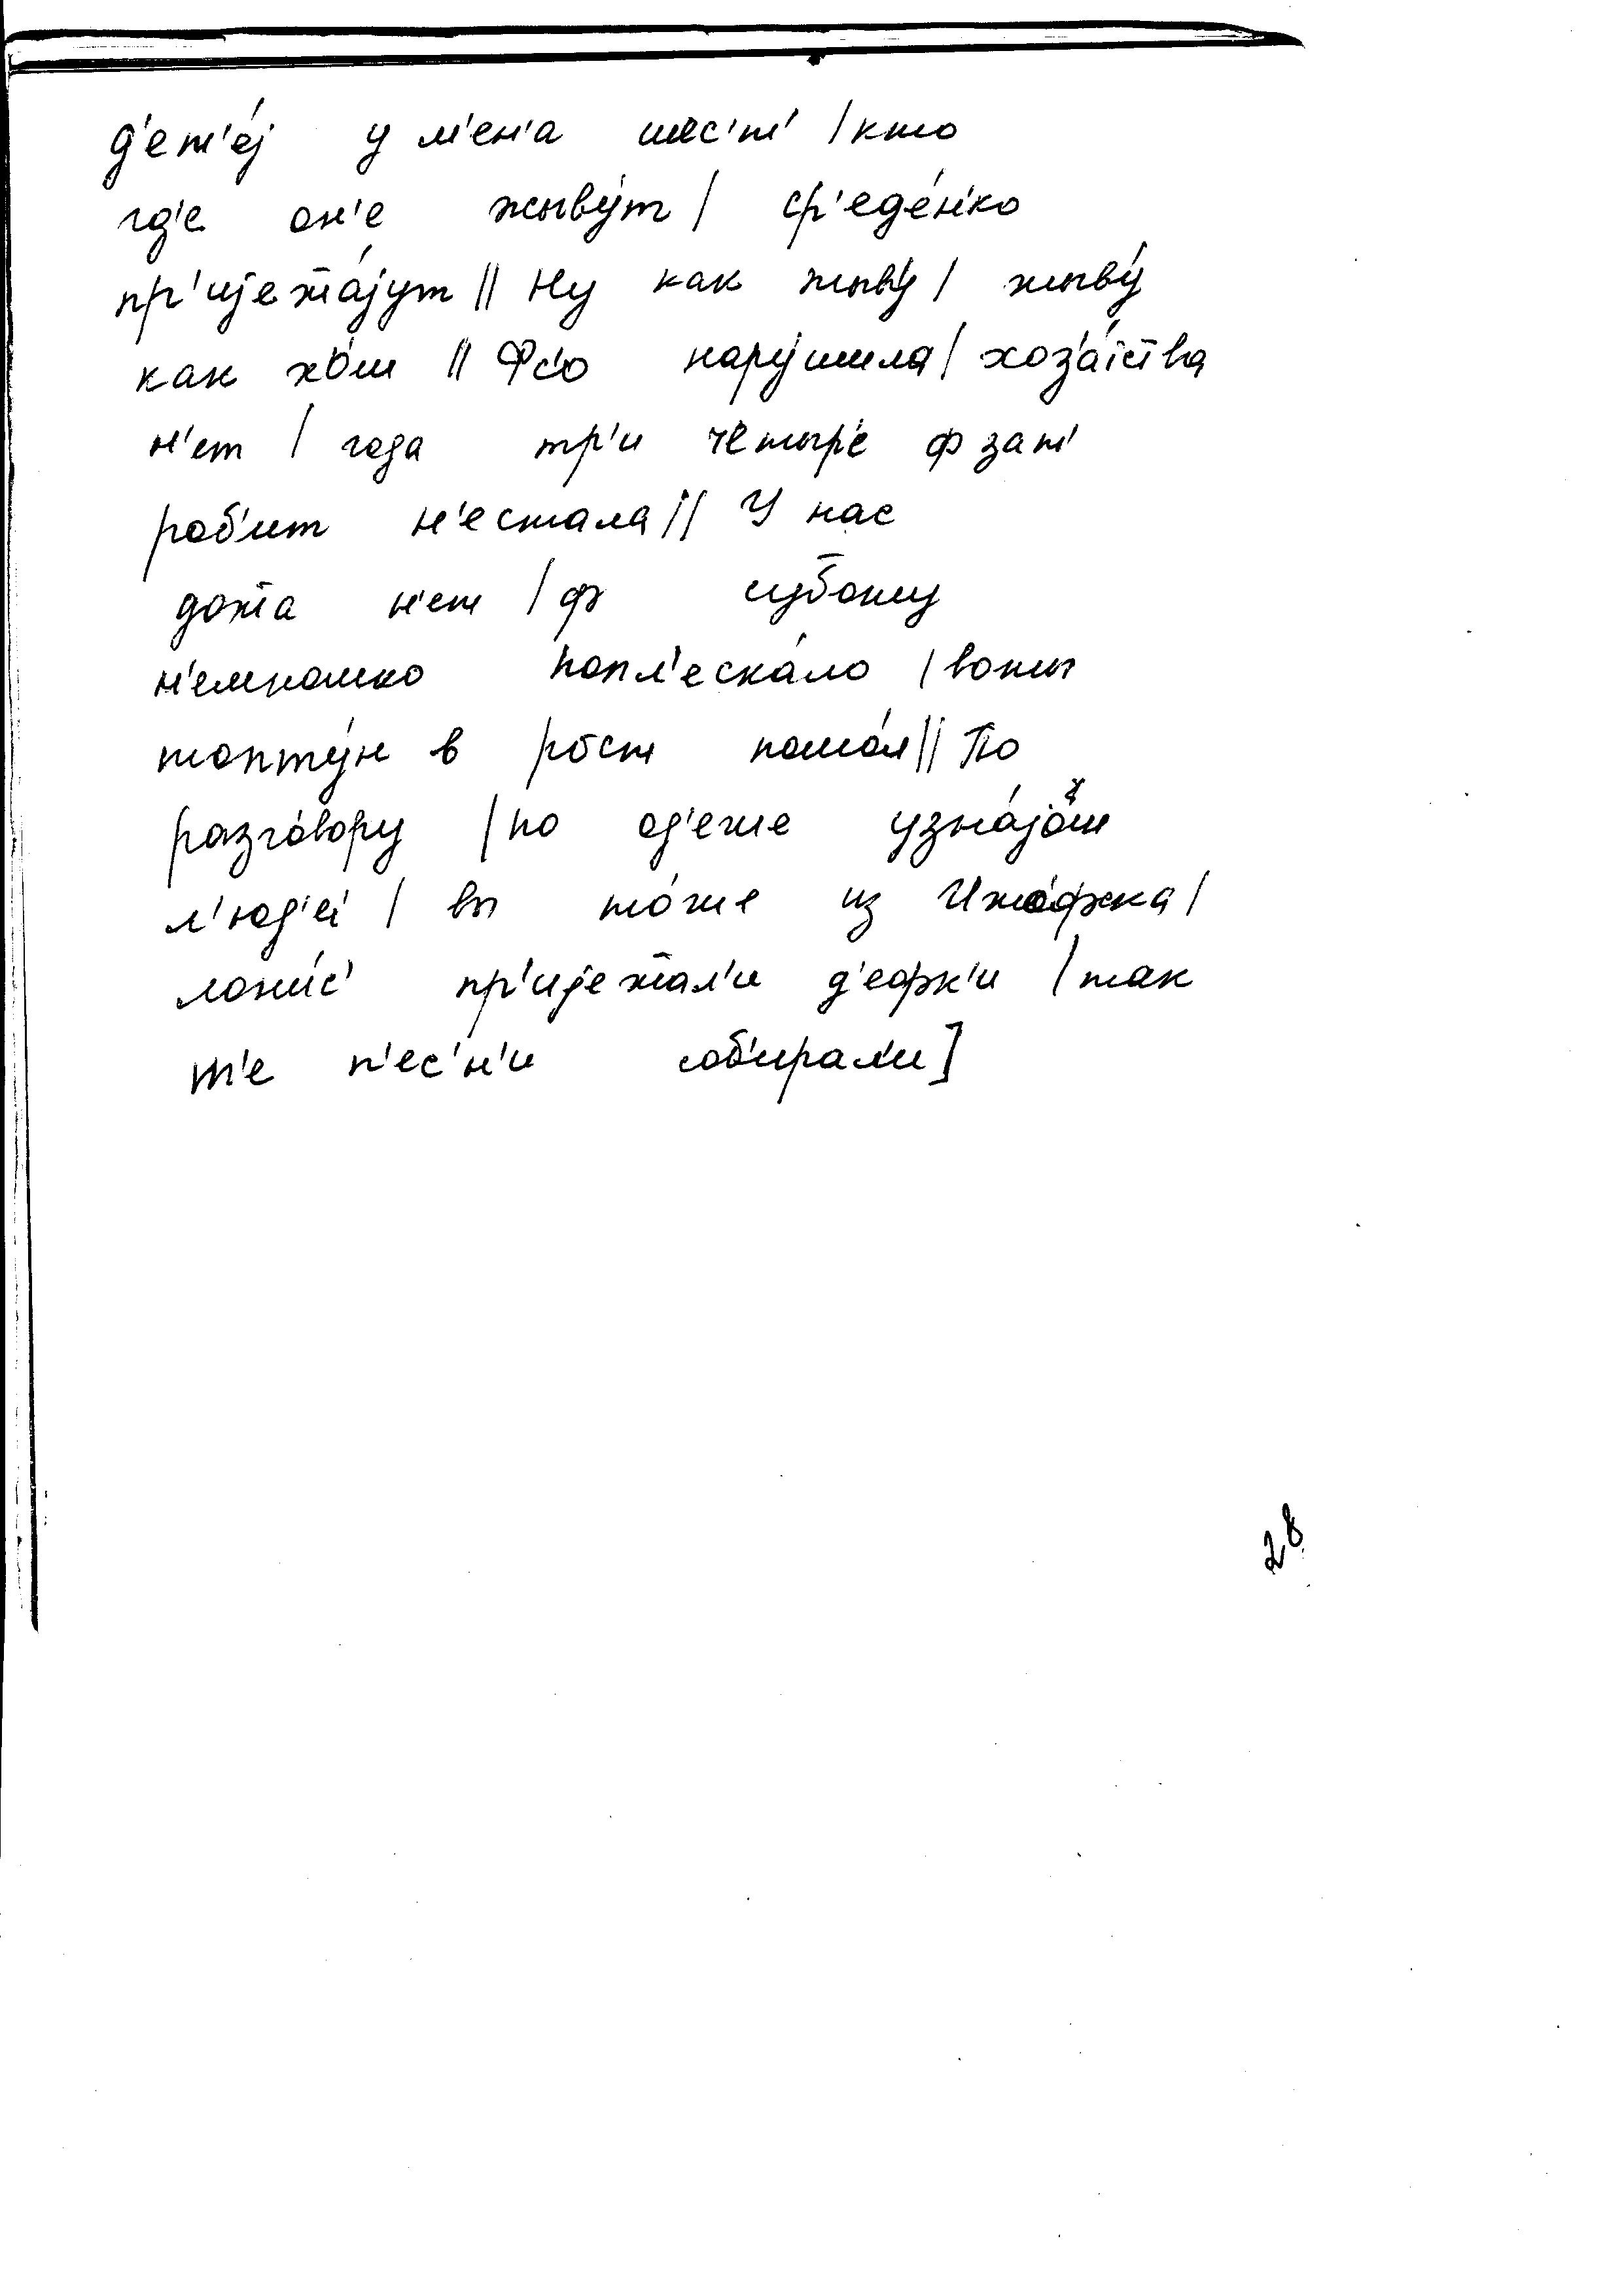 д'ет'éj у м'ен'а шес'т' | кто
гд'е он'е жывýт | ср'едéн'ко
пр'иjежáјут || Ну как жывý | жывý
как хош || Фс'о нарýшила | хоз'áјства
н'ет | года тр'и четыр'е ф зат'
роб'ит н'естала || У нас
дожа н'ет | ф субошу
н'емношко попл'ескáло | воты
топтýн в рост пошóл || По
разгóвору | по од'еже узнáјош
л'уд'еј | вы тóже из Ижóфжка |
лони́с' пр'иjежал'и д'ефк'и | так
т'е п'ес'н'и соб'ирал'и]
28